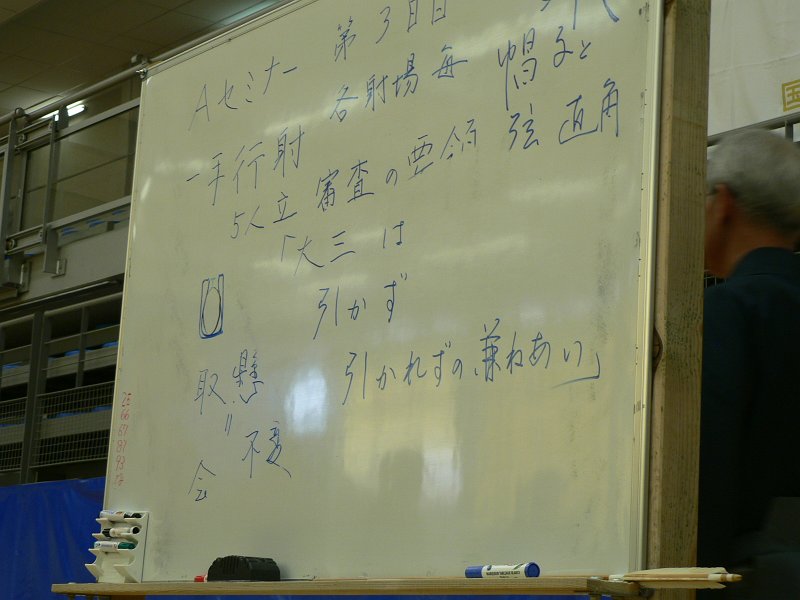 Aセミナー 第3日目
一手行射 各射場毎 帽子と
5人立 審査の要領 弦 直角
「大三は
引かず
引かれずの兼ねあい」
取懸
〃 不変
会
26
66
67
81
93
国